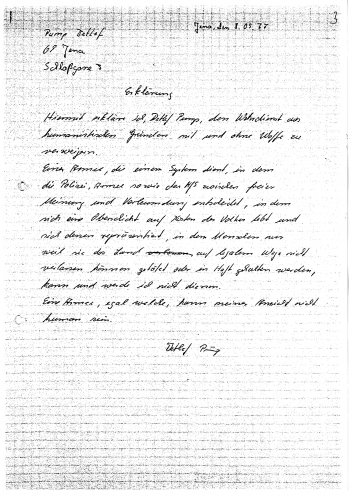 1
3
Jena, den 8.05.77
Pump Detlef
69 Jena
Schloßgasse 3
Erklärung
Hiermit erkläre ich, Detlef Pump, den Wehrdienst aus
humanistischen Gründen, mit und ohne Waffe zu
verweigern.
Einer Armee, die einem System dient, in dem
die Polizei, Armee sowie der MfS zwischen freier
Meinung und Verleumdung entscheidet, in dem
sich eine Oberschicht auf Kosten des Volkes lebt und
sich dennoch repräsentiert, in dem Menschen nur
weil sie das Land auf legalem Wege nicht
verlassen können getötet oder in Haft gehalten werden,
kann und werde ich nicht dienen.
Eine Armee, egal welche, kann meiner Ansicht nicht
human sein.
Detlef Pump